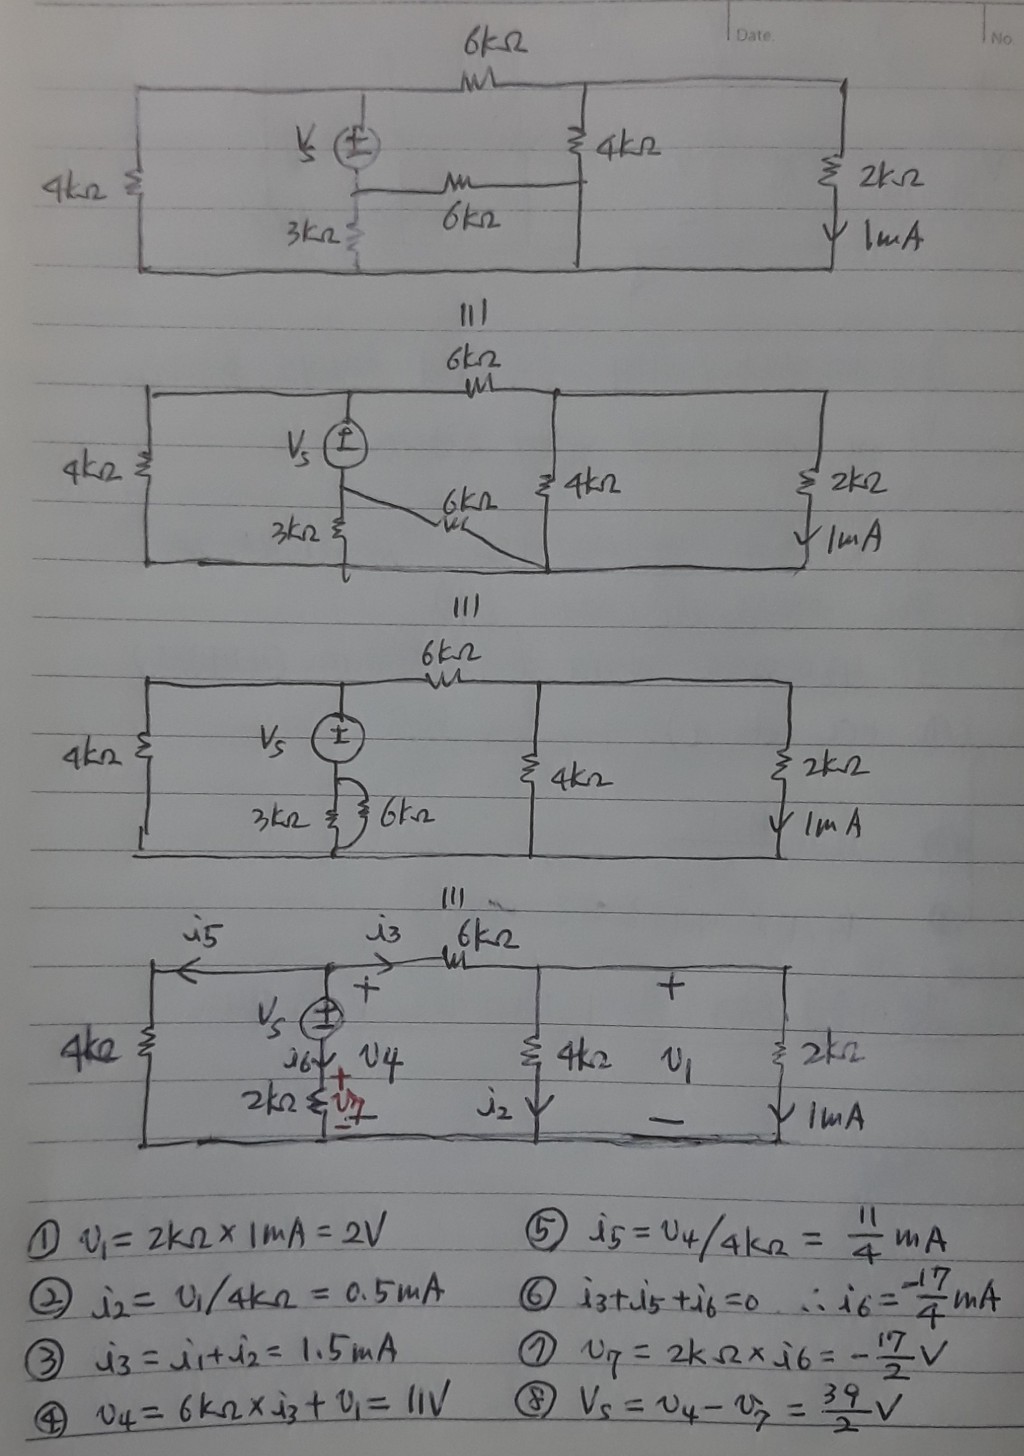 Date.
No
6kΩ
Vs
±
4kΩ
4kΩ
2kΩ
6kΩ
3kΩ
1mA
|||
6kΩ
Vs
±
4kΩ
6kΩ
4kΩ
2kΩ
3kΩ
1mA
|||
6kΩ
Vs
±
4kΩ
4kΩ
2kΩ
3kΩ
6kΩ
1mA
|||
i5
i3
6kΩ
+
+
Vs
±
4kΩ
i6
v4
4kΩ
v1
2kΩ
+
2kΩ
v7
i2
1mA
−
−
① v1 = 2kΩ × 1mA = 2V
② i2 = v1/4kΩ = 0.5mA
③ i3 = i1+i2 = 1.5mA
④ v4 = 6kΩ×i3 + v1 = 11V
⑤ i5 = v4/4kΩ = 11/4 mA
⑥ i3+i5+i6=0 ∴ i6 = -17/4 mA
⑦ v7 = 2kΩ×i6 = -17/2 V
⑧ Vs = v4 - v7 = 39/2 V